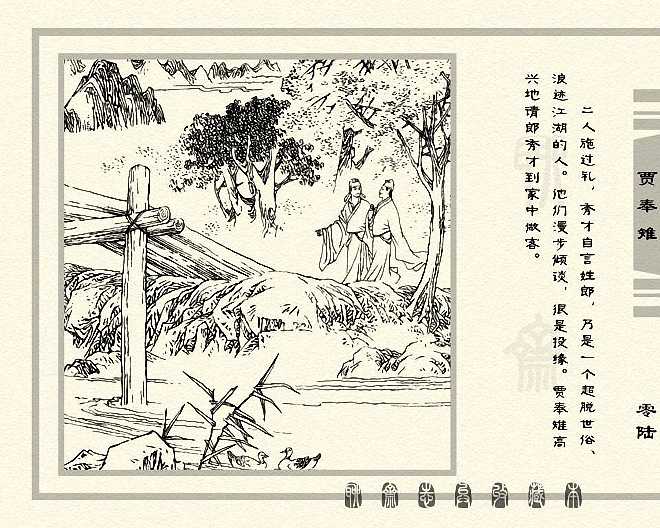 二人施过礼，秀才自言姓郎，乃是一个超脱世俗、
浪迹江湖的人。他们漫步倾谈，很是投缘。贾奉雉高
兴地请郎秀才到家中做客。
贾奉雉
零陆
聊斋志异收藏本